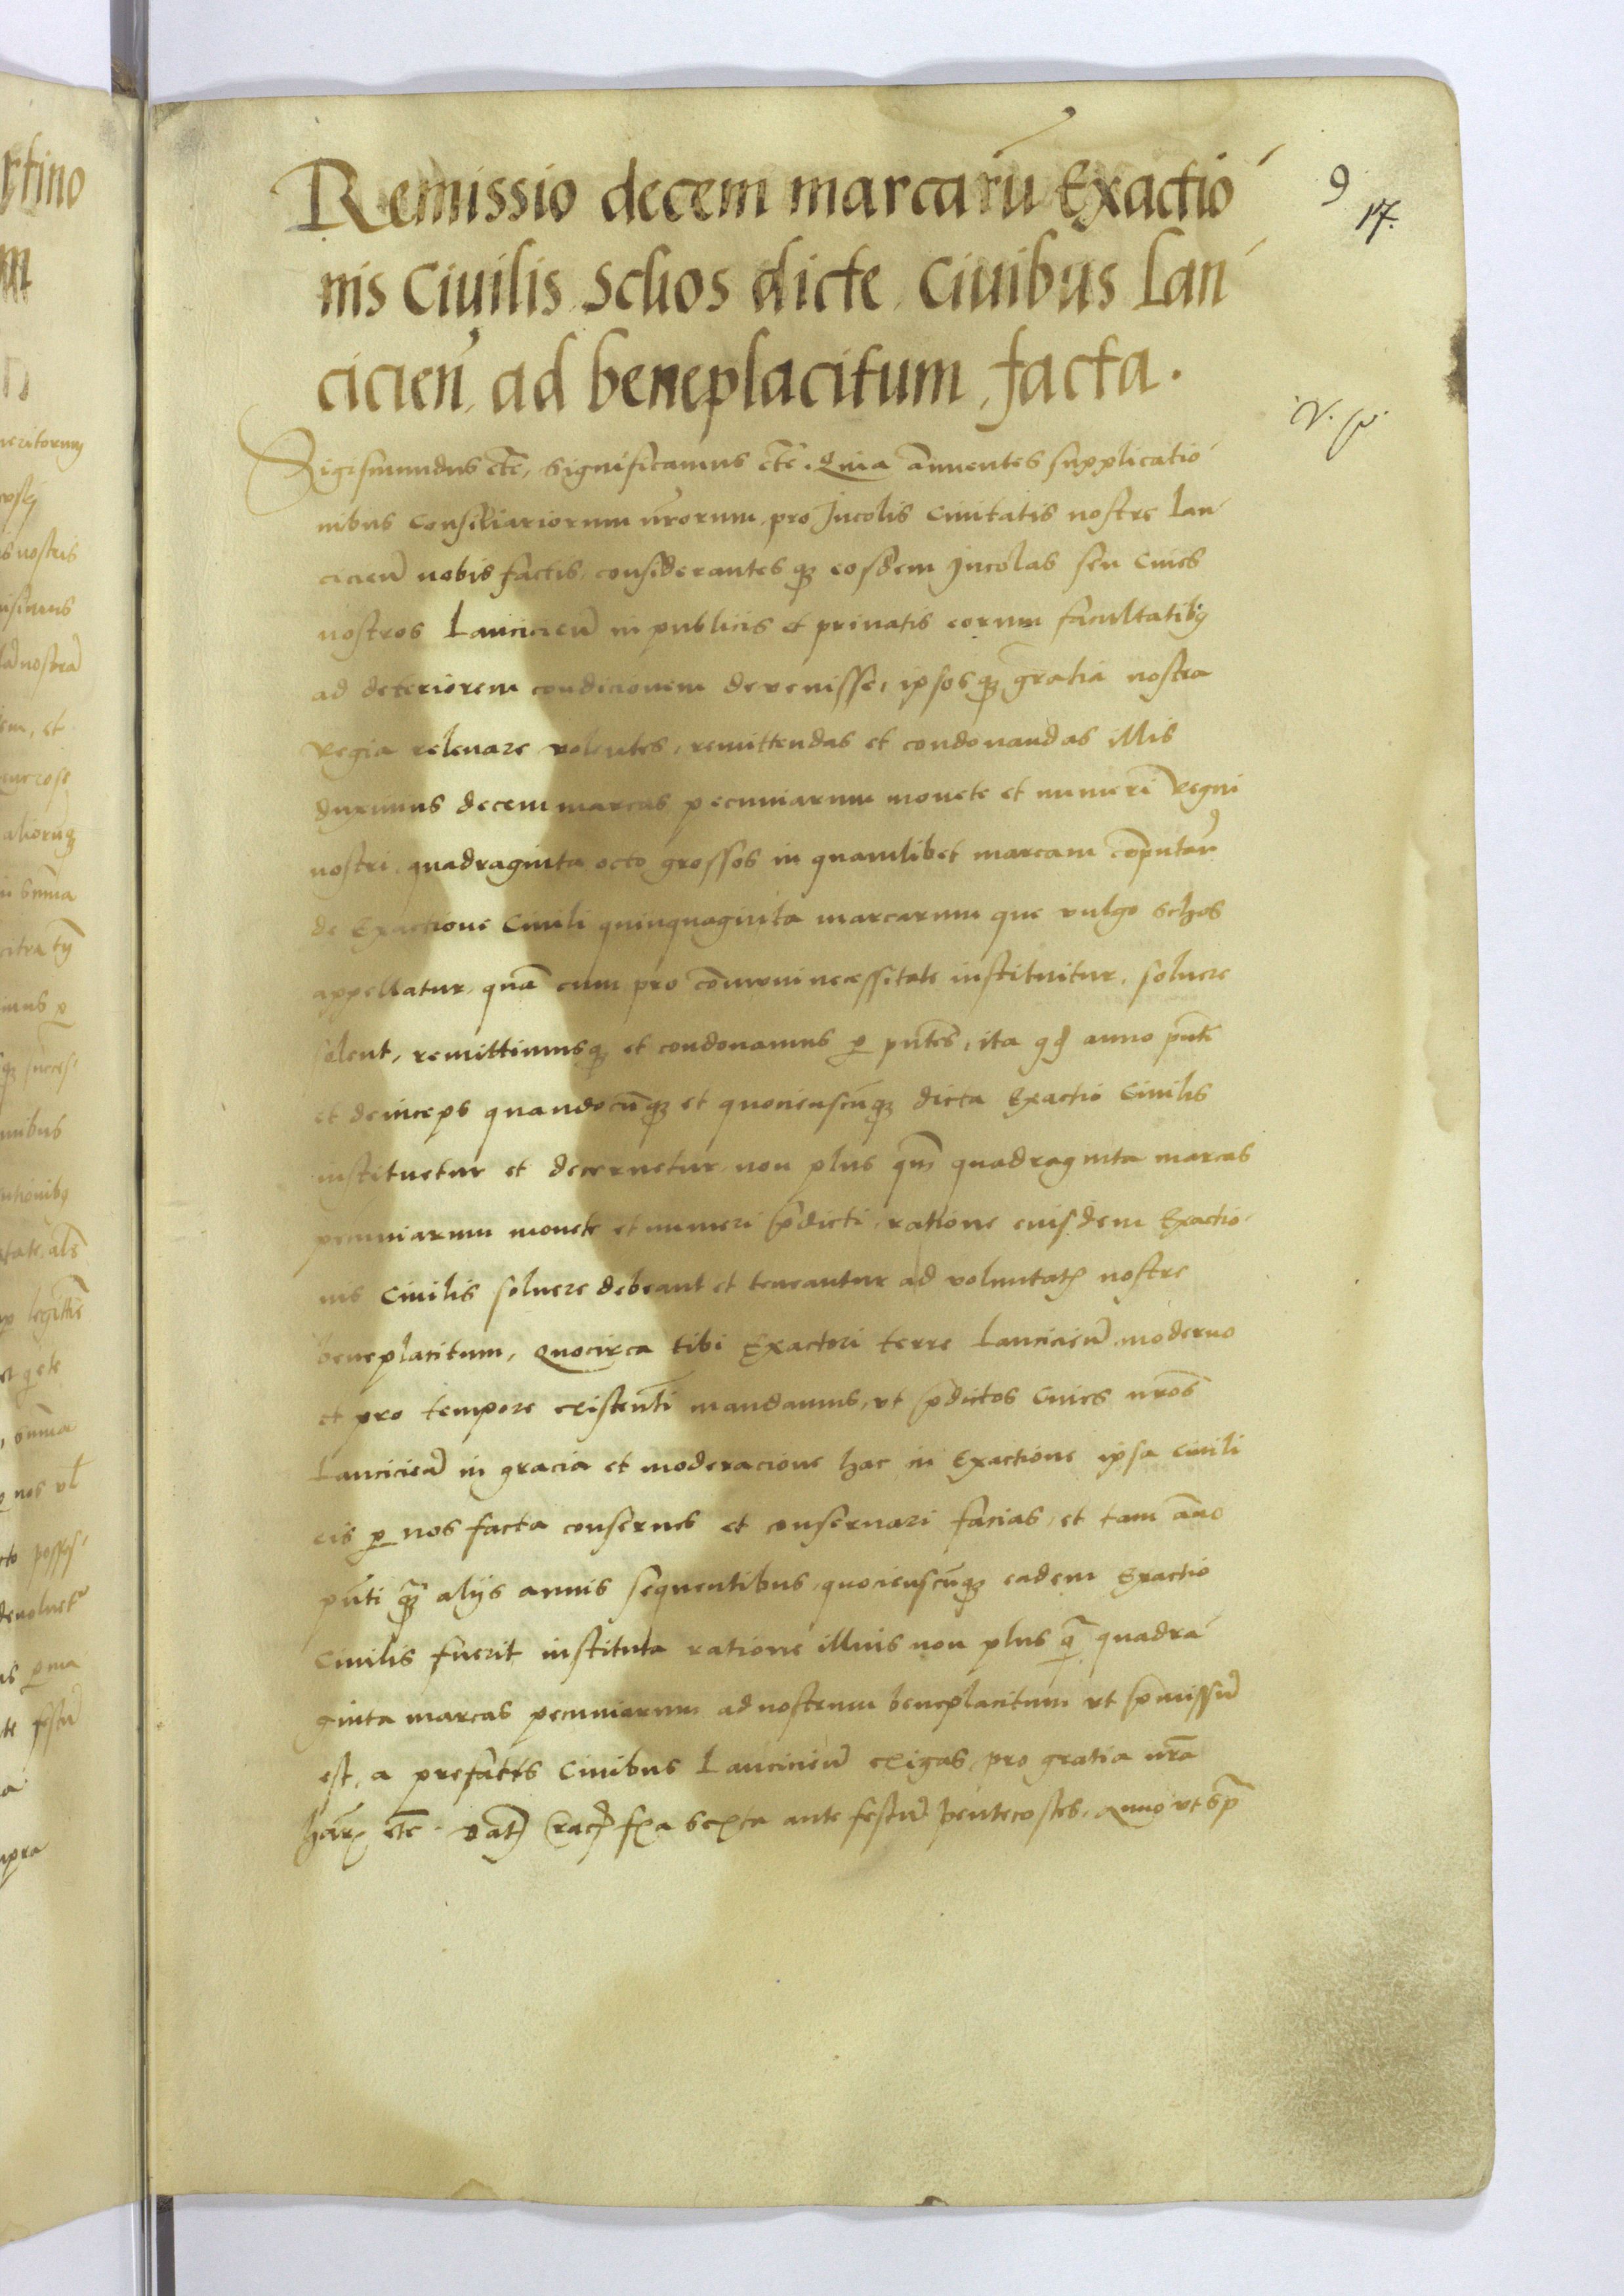 Remissio decem marcarū Exactio
nis Ciuilis Schos dicte Ciuibus Lan
cicien̄ ad beneplacitum facta.
9
17.
Sigismundus etc̄, Significamus etc̄. Quia annuentes supplicatio
nibus Consiliariorum nr̄orum pro Incolis Ciuitatis nostre Lan
cicien̄ nobis factis, considerantesqꝫ eosdem Incolas seu Ciues
nostros Lancicien̄ in publicis et priuatis eorum facultatibꝫ
ad deteriorem condicionem deuenisse, ipsosqꝫ gratia nostra
regia releuare volentes, remittendas et condonandas illis
duximus decem marcas pecuniarum monete et numeri Regni
nostri, quadraginta octo grossos in quamlibet marcam computan̄
de Exactione Ciuili quinquaginta marcarum que vulgo schos
appellatur, quā cum pro com̄uni necessitate instituitur, soluere
solent, remittimusqꝫ et condonamus ꝑ pn̄tes, ita qd̄ anno pn̄ti
et deinceps quandocūqꝫ et quocienscūqꝫ dicta Exactio Ciuilis
instituetur et decernetur non plus qm̄ quadraginta marcas
pecuniarum monete et numeri p̄dicti ratione eiusdem Exactio
nis Ciuilis soluere debeant et teneantur ad voluntatꝭ nostre
beneplacitum, Quocirca tibi Exactori terre Lancicien̄ moderno
et pro tempore existenti mandamus, vt p̄dictos Ciues nr̄os
Lancicien̄ in gracia et moderacione hac in Exactione ipsa Ciuili
eis ꝑ nos facta conserues et conseruari facias, et tam anno
pn̄ti qꝫ̄ alijs annis sequentibus, quocienscūqꝫ eadem Exactio
Ciuilis fuerit instituta ratione illius non plus q̄ quadra
ginta marcas pecuniarum ad nostrum beneplacitum vt p̄missū
est, a prefatis Ciuibus Lancicien̄ exigas, pro gratia nr̄a
harꝫ etc̄. Dat̄ Crac̄ fꝭa sexta ante festū Pentecostes. Anno vt sp̄